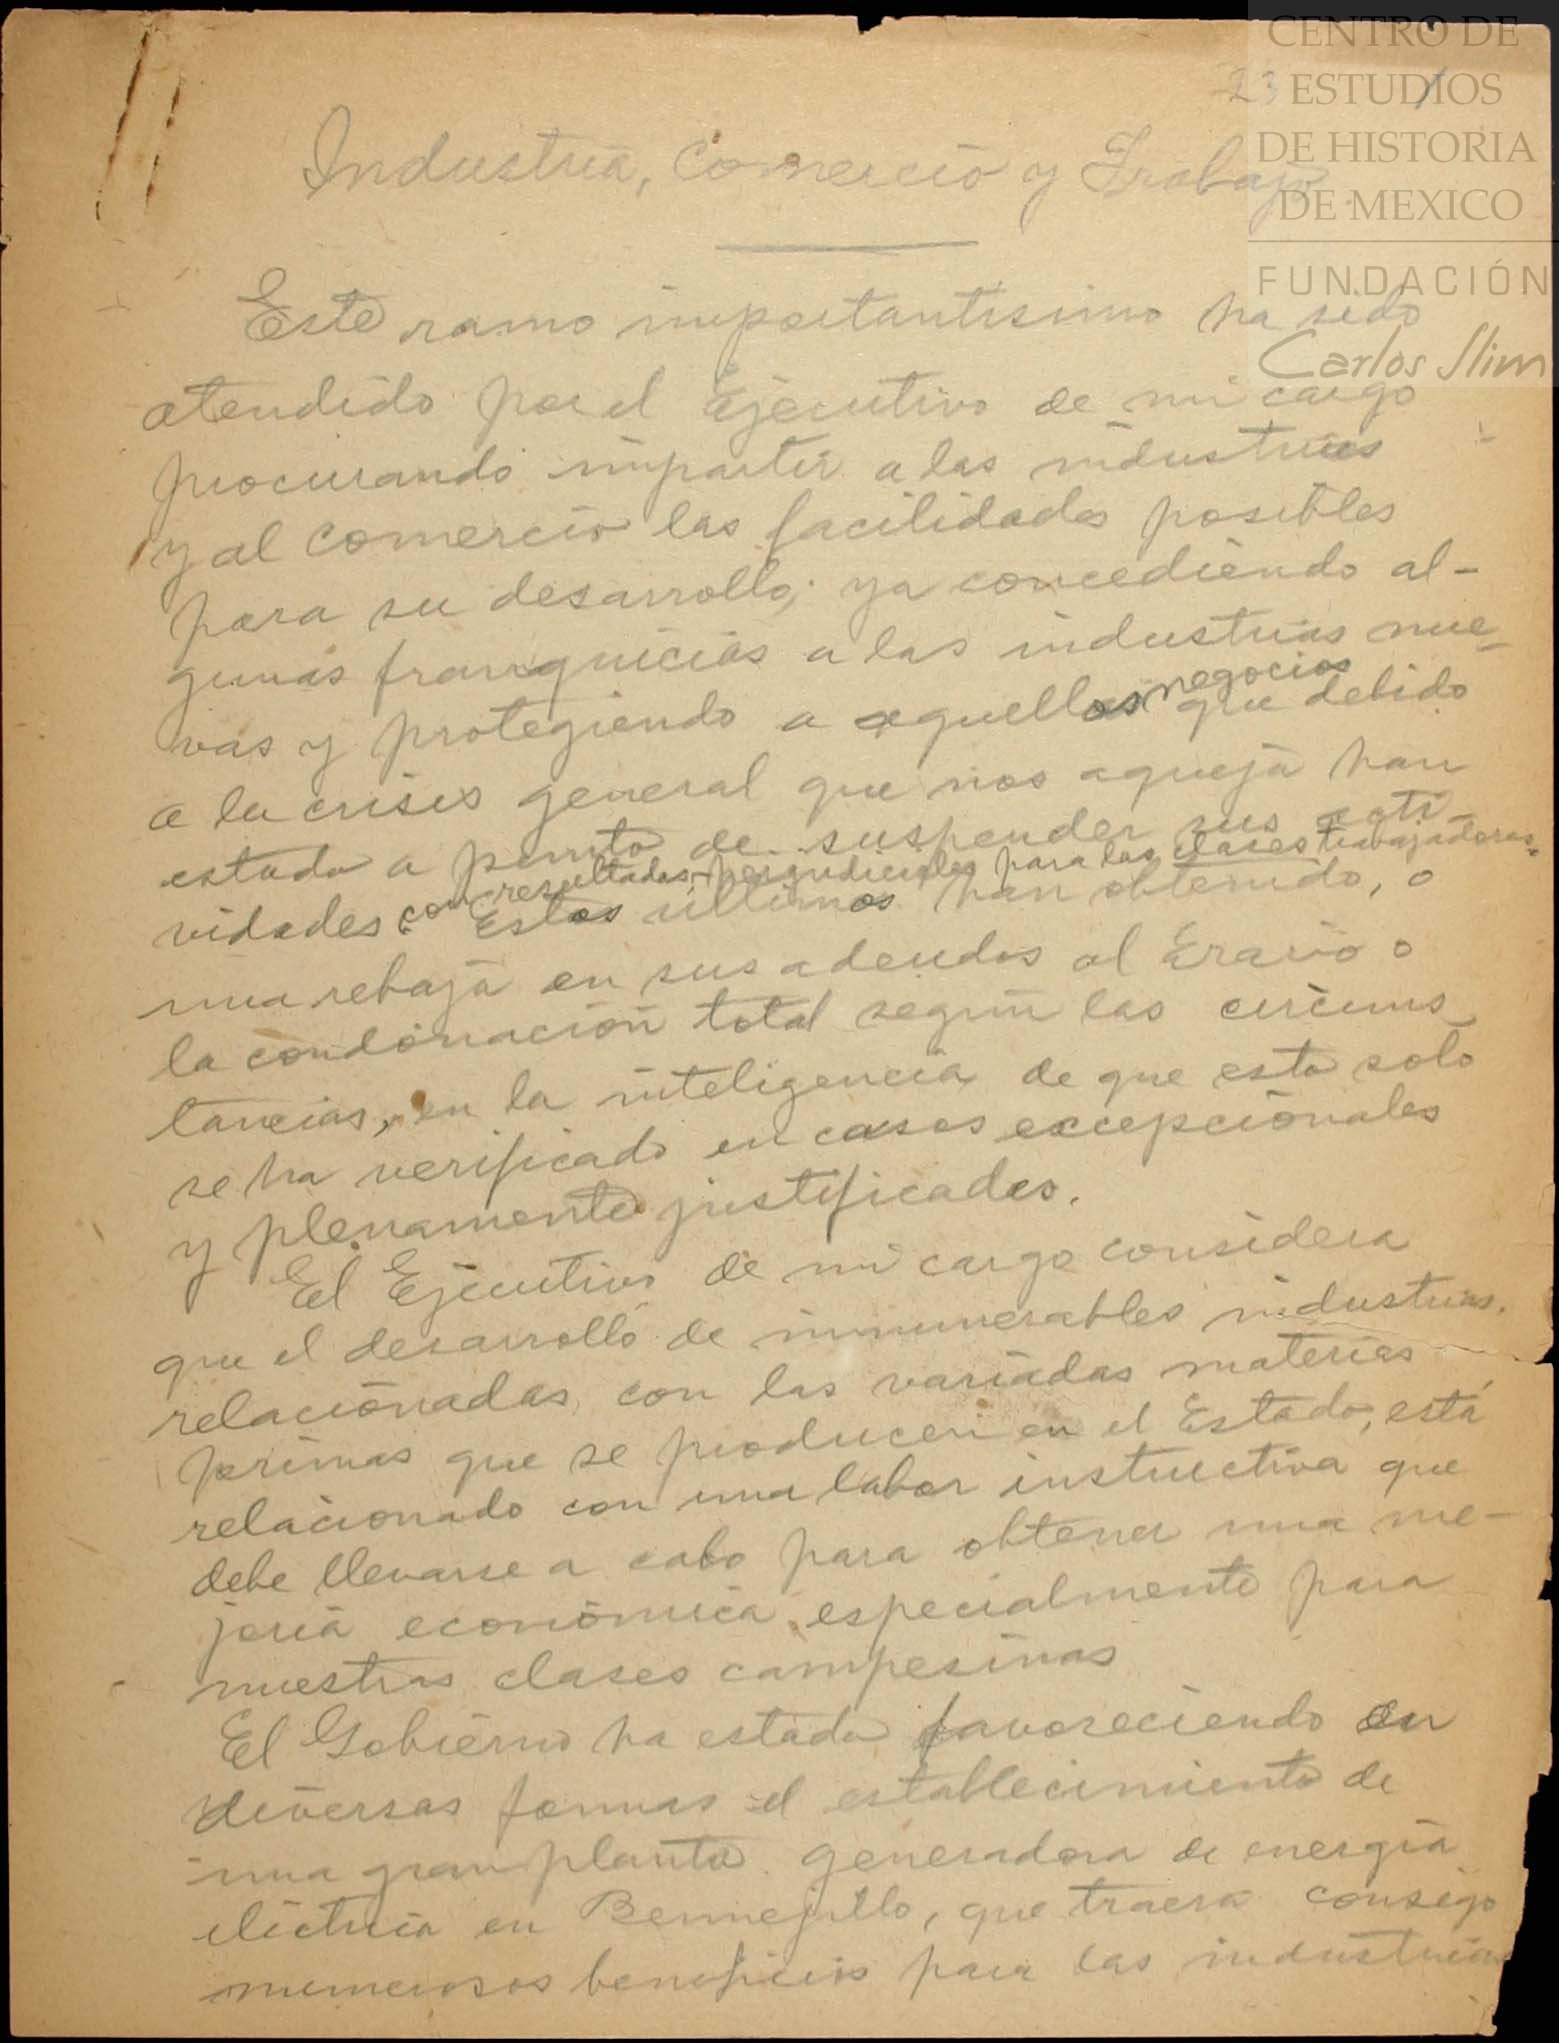 CENTRO DE
ESTUDIOS
DE HISTORIA
DE MEXICO
FUNDACIÓN
Carlos Slim
23
Industria, Comercio y Trabajo.
Este ramo importantísimo ha sido
atendido por el Ejecutivo de mi cargo
procurando impartir a las industrias
y al comercio las facilidades posibles
para su desarrollo; ya concediendo al-
gunas franquicias a las industrias nue-
vas y protegiendo a aquellos negocios que debido
a la crisis general que nos aqueja han
estado a punto de suspender sus acti-
vidades con resultados perjudiciales para las clases trabajadoras.
Estos últimos han obtenido, o
una rebaja en sus adeudos al Erario o
la condonación total según las circuns
tancias, en la inteligencia de que esto solo
se ha verificado en casos excepcionales
y plenamente justificados.
El Ejecutivo de mi cargo considera
que el desarrollo de innumerables industrias,
relacionadas con las variadas materias
primas que se producen en el Estado, está
relacionado con una labor instructiva que
debe llevarse a cabo para obtener una me-
joría económica especialmente para
nuestras clases campesinas
El Gobierno ha estado favoreciendo en
diversas formas el establecimiento de
una gran planta generadora de energía
eléctrica en Bermejillo, que traerá consigo
numerosos beneficios para las industrias